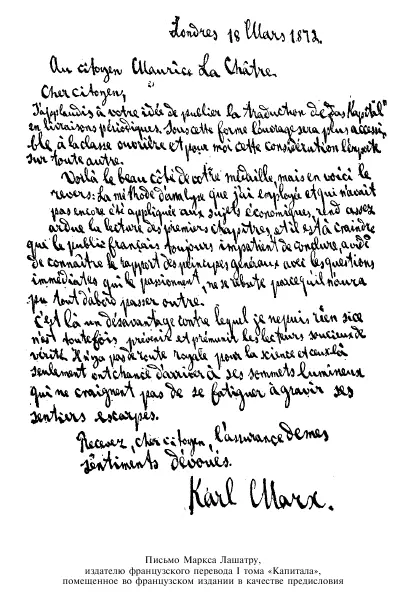 Londres 18 Mars 1872.
Au citoyen Maurice La Châtre.
Cher citoyen,
J'applaudis à votre idée de publier la traduction de „Das Kapital"
en livraisons périodiques. Sous cette forme l'ouvrage sera plus accessi-
ble à la classe ouvrière et pour moi cette considération l'emporte
sur toute autre.
Voilà le beau côté de votre médaille, mais en voici le
revers: La méthode d'analyse que j'ai employée et qui n'avait
pas encore été appliquée aux sujets économiques, rend assez
ardue la lecture des premiers chapitres, et il est à craindre
que le public français toujours impatient de conclure, avide
de connaître le rapport des principes généraux avec les questions
immédiates qui le passionnent, ne se rebute parce qu'il n'aura
pu tout d'abord passer outre.
C'est là un désavantage contre lequel je ne puis rien si ce
n'est toutefois prévenir et prémunir les lecteurs soucieux de
vérité. Il n'y a pas de route royale pour la science et ceux là
seulement ont chance d'arriver à ses sommets lumineux
qui ne craignent pas de se fatiguer à gravir ses
sentiers escarpés.
Recevez, cher citoyen, l'assurance de mes
sentiments dévoués.
Karl Marx.
Письмо Маркса Лашатру,
издателю французского перевода I тома «Капитала»,
помещенное во французском издании в качестве предисловия